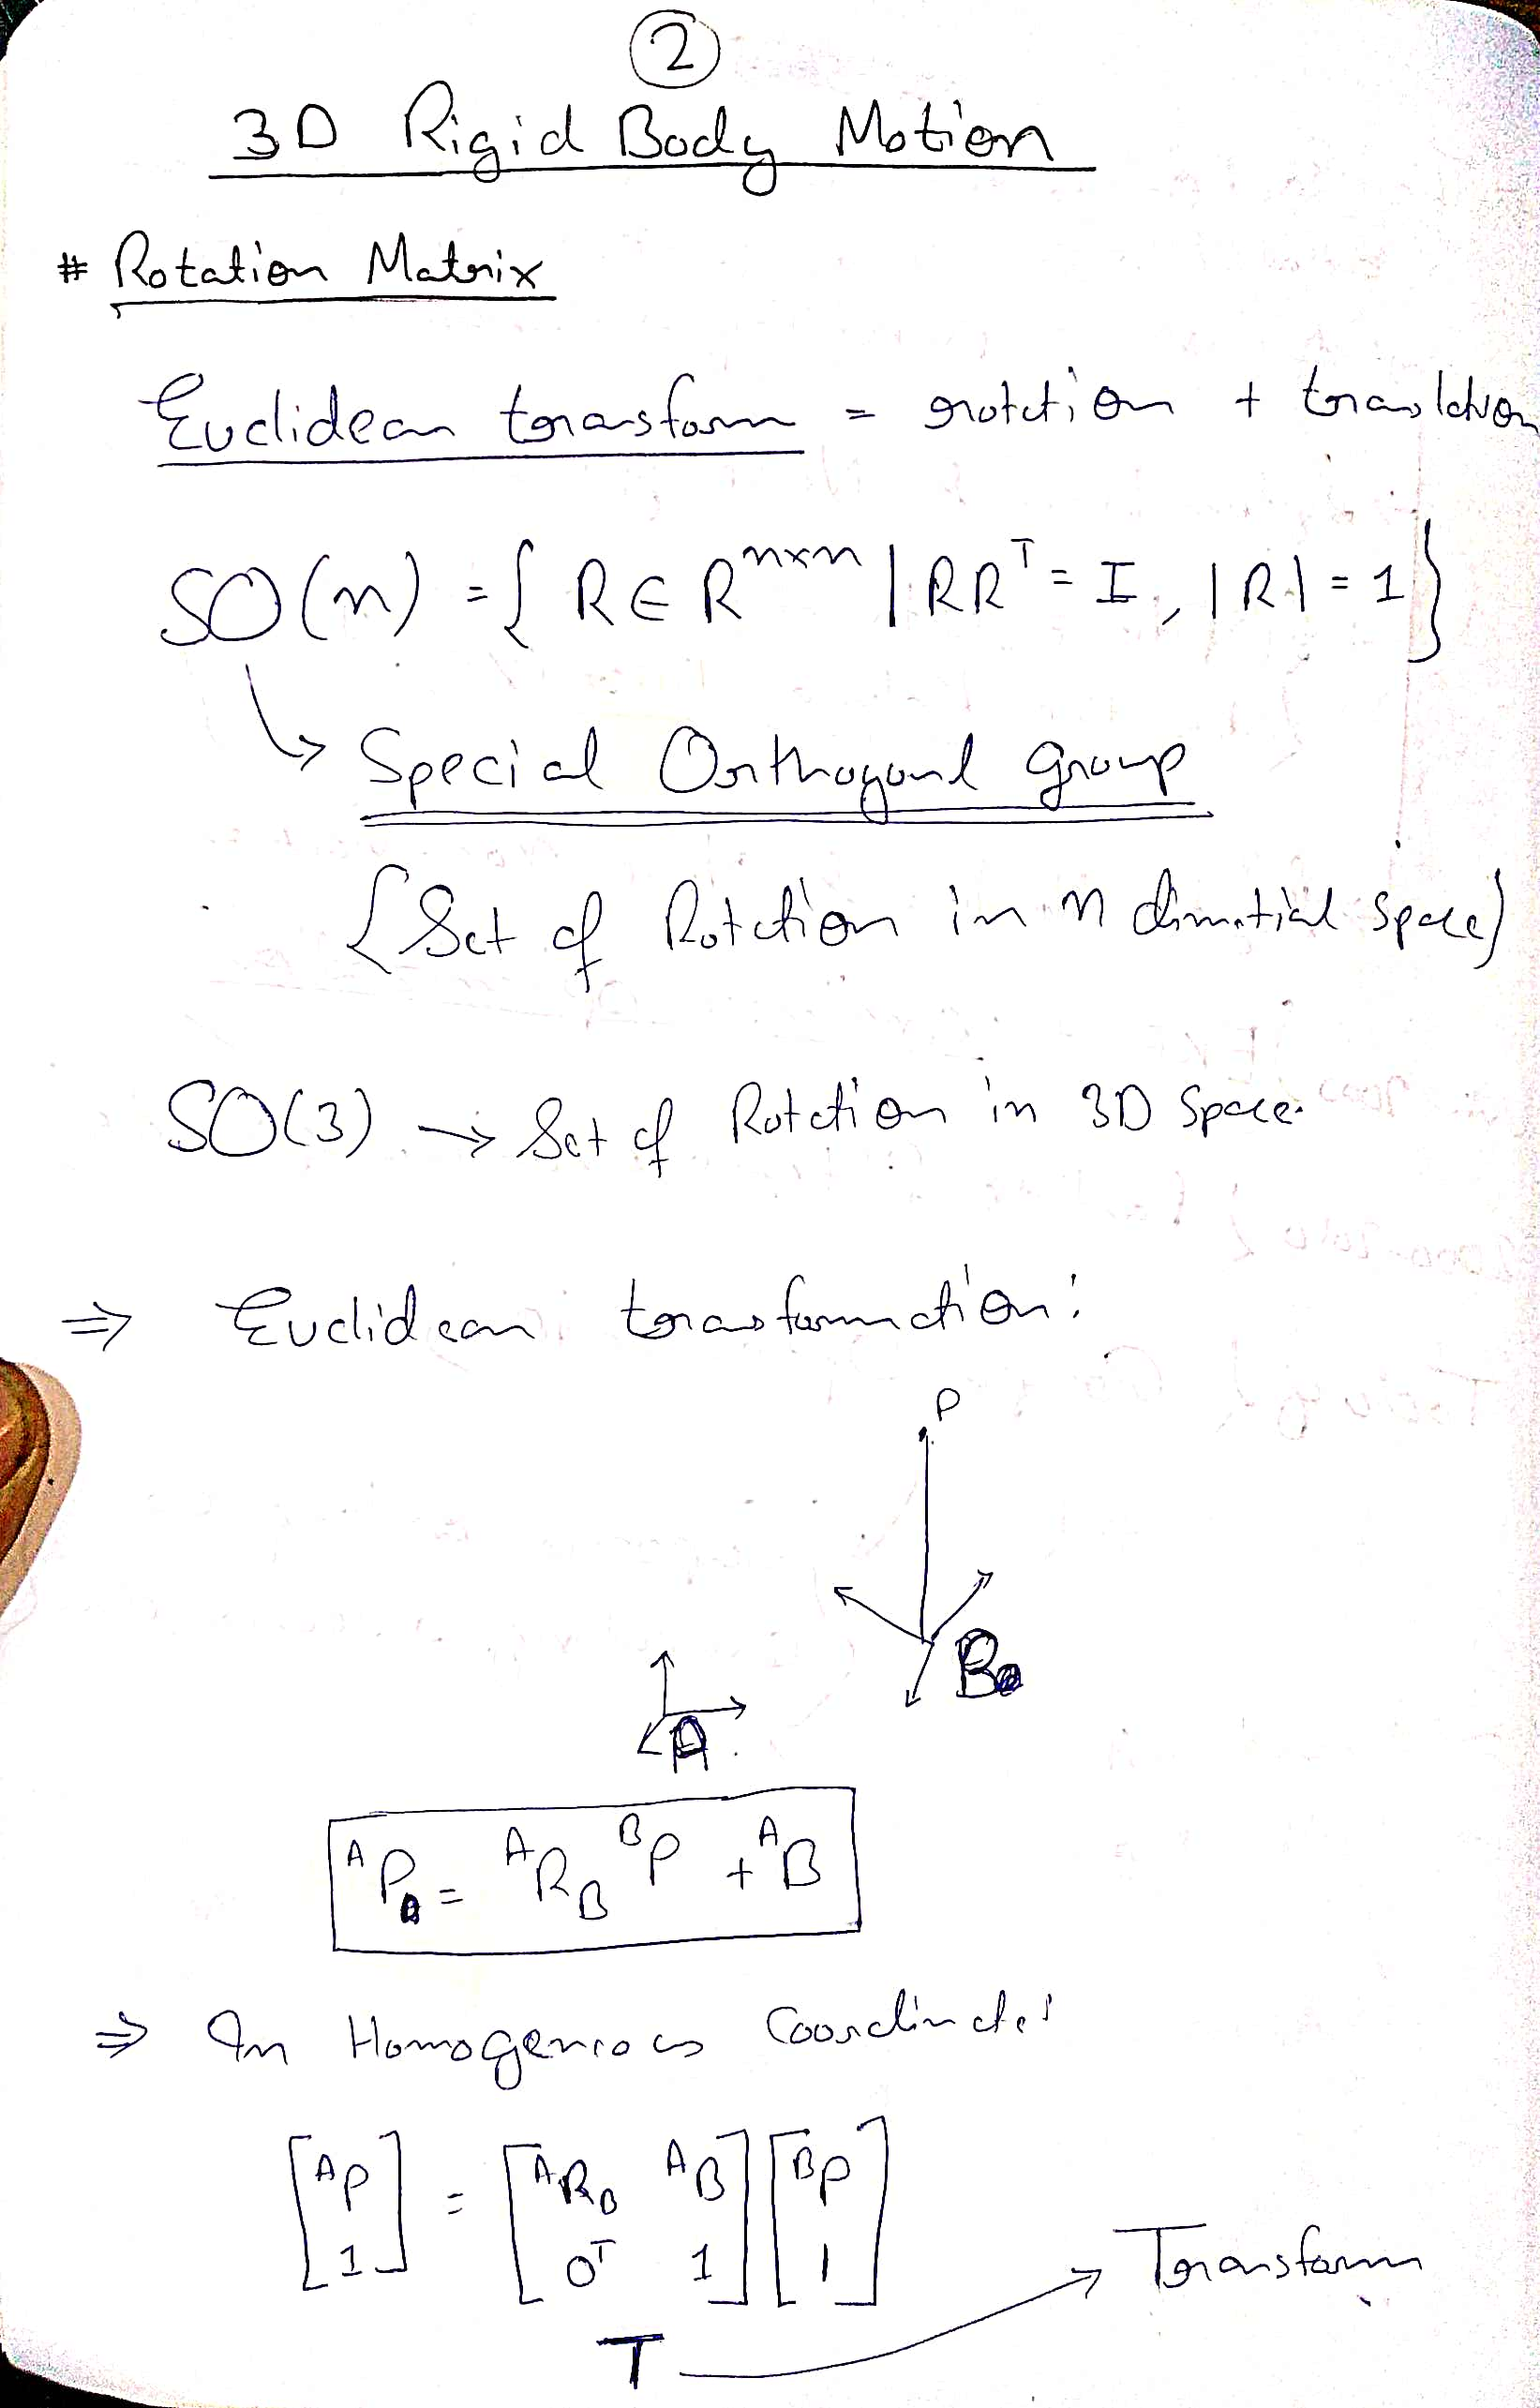 2
3D Rigid Body Motion
# Rotation Matrix
Euclidean transform = rotation + translation
SO(n) = { R ∈ R^{n×n} | RR^T = I, |R| = 1 }
↳ Special Orthogonal group
{ Set of Rotation in n space }
SO(3) → Set of Rotation in 3D Space.
⇒ Euclidean transformation:
P
B
A
^A P = ^A R_B ^B P + ^A B
⇒ In Coordinates
[^A P 1] = [^A R_B ^A B 0^T 1] [^B P 1]
T → Transform